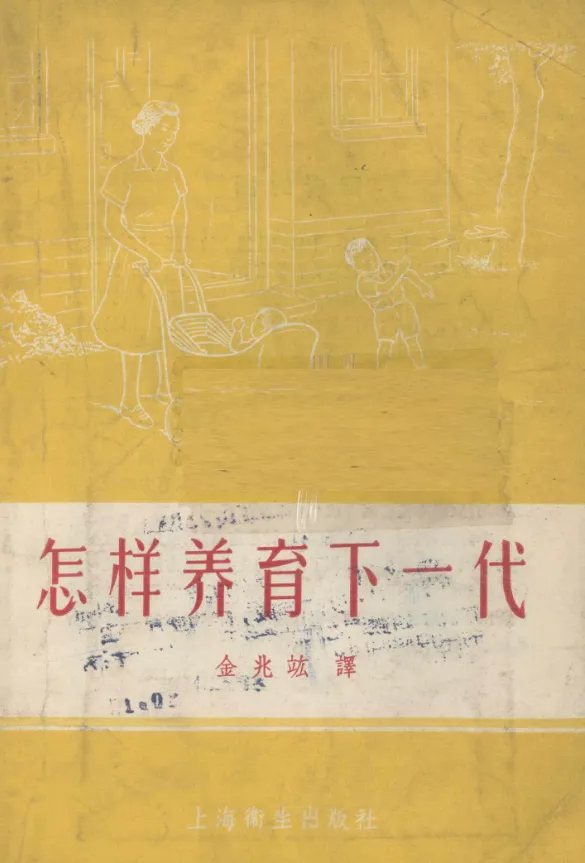 怎样养育下一代
金兆竑 譯
上海衛生出版社